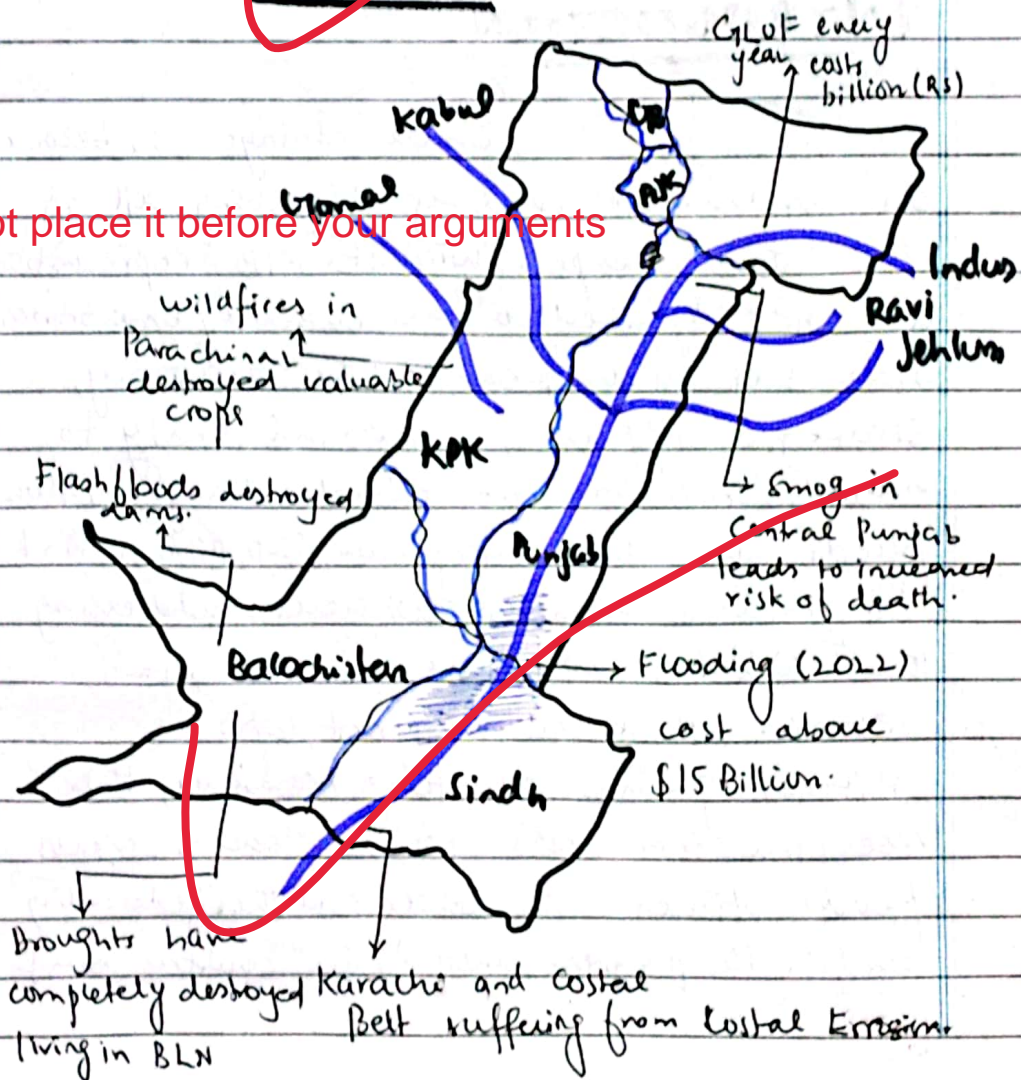 GLOF every
year costs
billion (Rs)
Kabul
GB
AJK
Gomal
ot place it before your arguments
Indus
Ravi
Jehlum
wildfires in
Parachinar
destroyed valuable
crops
KPK
Flash floods destroyed
dams.
Smog in
Central Punjab
leads to increased
risk of death.
Punjab
Balochistan
Flooding (2022)
cost above
$15 Billion.
Sindh
Droughts have
completely destroyed
living in BLN
Karachi and Costal
Belt suffering from Costal Erosion.